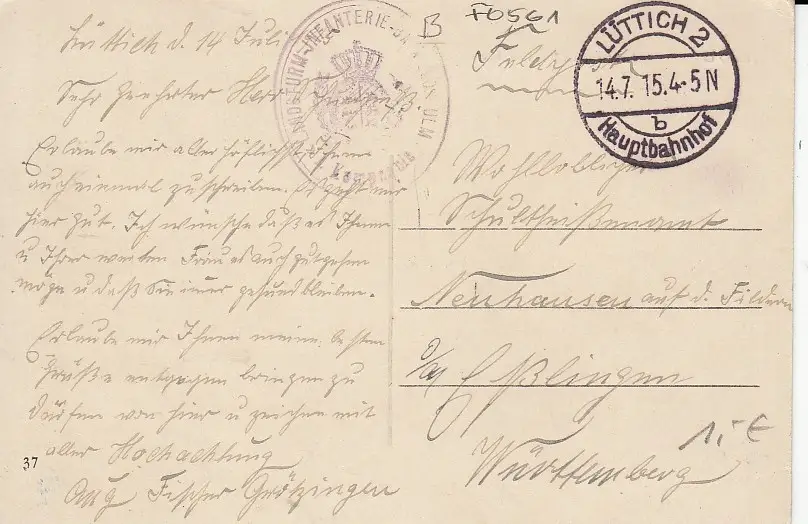 Lüttich d. 14 Juli
Sehr geehrter Herr
Erlaube mir aller höflichst, Ihnen
auch einmal zu schreiben. Es geht mir
hier gut. Ich wünsche daß es Ihnen
u Ihrer werten Frau es auch gut gehen
möge u daß Sie imer gesund bleiben.
Erlaube mir Ihnen meine besten
Grüße entgegen bringen zu
dürfen von hier u zeichne mit
aller Hochachtung
Aug Fischer Grötzingen
37
LANDSTURM-INFANTERIE-BATL. ULM
B
F0561
Feldpost
LÜTTICH 2
14.7. 15.4-5N
b
Hauptbahnhof
Wohllöbliches
Schultheißenamt
Neuhausen auf d. Fildern
O/A Eßlingen
Württemberg
1,- €